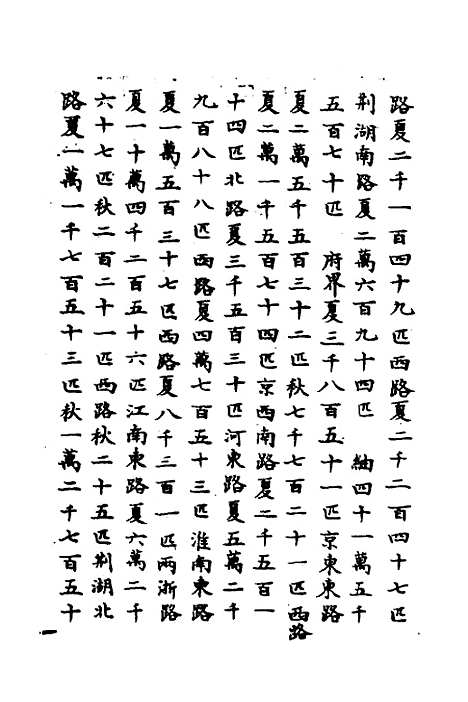 路夏二千一百四十九匹西路夏二千二百四十七匹
荆湖南路夏二萬六百九十四匹　紬四十一萬五千
五百七十匹　府界夏三千八百五十一匹京東東路
夏二萬五千五百三十二匹秋七千七百二十一匹西路
夏二萬一千五百七十四匹京西南路夏二千五百一
十四匹北路夏三千五百三十匹河東路夏五萬二千
九百八十八匹西路夏四萬七百五十三匹淮南東路
夏一萬五百三十七匹西路夏八千三百一匹兩浙路
夏一十萬四千二百五十六匹江南東路夏六萬二千
六十七匹秋二百二十一匹西路秋二十五匹荆湖北
路夏一萬一千七百五十三匹秋一萬二千七百五十